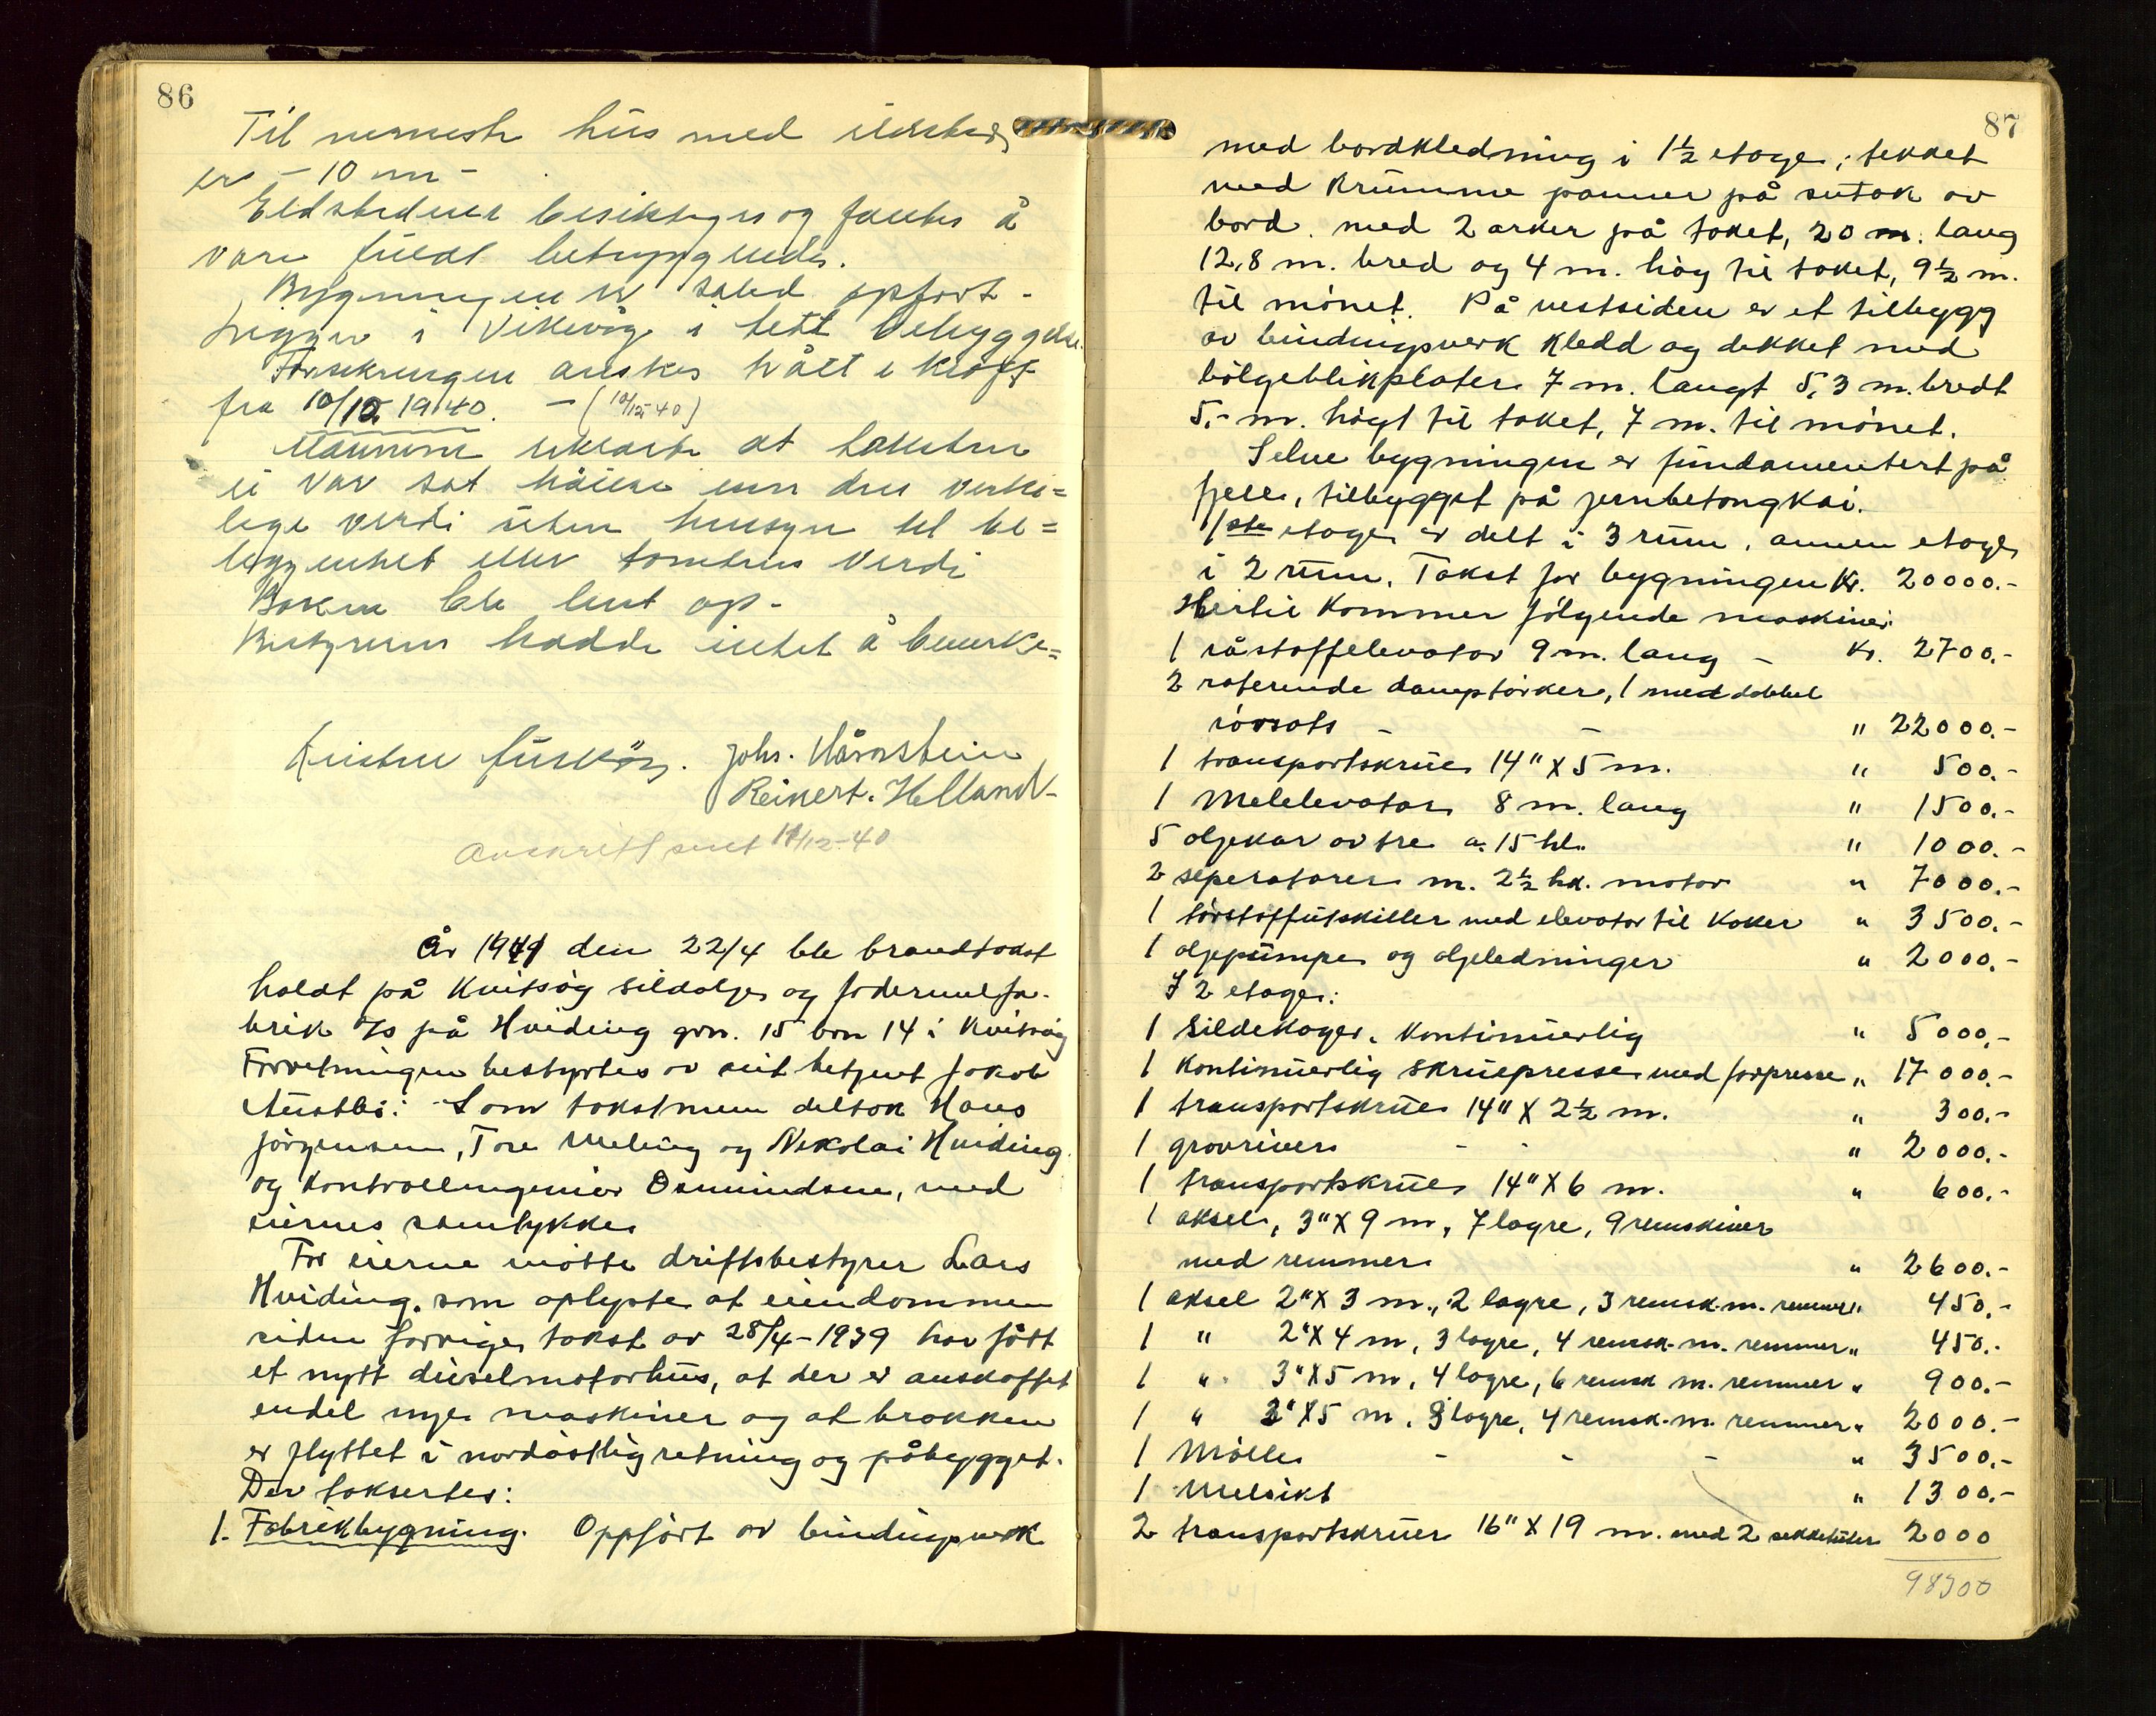 86
Til nærmeste hus med ildsted
er – 10 m –
Eldstedene besiktiges og fantes å
være fuldt betryggende.
Bygningen er solid opført.
Ligger i Vikevåg i tett bebyggelse.
Forsikringen ønskes trått i kraft
fra 10/12 1940. – (10/12 40)
Mennene erklærte at taksten
ei var sat høiere enn den virke=
lige verdi uten hensyn til be=
liggenhet eller tomtens verdi
Boken ble lest op.
Bestyreren hadde intet å bemerke=
Johs. Hårstein
Reinert. Helland
Avskrift sent 11/12-40
År 1941 den 22/4 ble brandtakst
holdt på Kvitsøy sildolje og fodermelfa-
brik a/s på Hviding grn. 15 brn 14 i Kvitsøy
Forretningen bestyrtes av sit betjent Jakob
Austbö. Som takstmenn deltok Hans
Jörgensen, Tore Meling og Nikolai Hviding
og Kontrollingeniör Osmundsen, med
eiernes samtykke.
For eierne mötte driftsbestyrer Lars
Hviding, som oplyste at eiendommen
siden forrige takst av 28/4-1939 har fått
et nytt dieselmotorhus, at der er anskaffet
endel nye maskiner og at brakken
er flyttet i nordöstlig retning og påbygget.
Der taksertes:
1. Fabrikbygning. Oppfört av bindingsverk
87
med bordkledning i 1½ etage, tekket
med krumme panner på sutak av
bord. med 2 arker på taket, 20 m. lang
12,8 m. bred og 4 m. höy til taket, 9½ m.
til mönet. På vestsiden er et tilbygg
av bindingsverk kledd og dekket med
bölgeblikplater 7 m. langt 5,3 m. bredt
5,- m. höyt til taket, 7 m. til mönet.
Selve bygningen er fundamentert på
fjell, tilbygget på jernbetongkai.
1ste etage er delt i 3 rum, annen etage
i 2 rum. Takst for bygningen Kr. 20000.-
Hertil kommer fölgende maskiner:
1 råstoffelevator 9 m. lang – Kr. 2700.-
2 roterende damptörker, 1 med dobbel
rörsats – – " 22000.-
1 transportskrue 14" X 5 m. " 500.-
1 Melelevator 8 m. lang " 1500.-
5 oljekar av tre a. 15 hl. " 1000.-
2 seperatorer m. 2½ hk. motor " 7000.-
1 törstoffutskiller med elevator til koker " 3500.-
1 oljepumpe og oljeledninger " 2000.-
I 2 etage:
1 Sildekoger, kontinuerlig " 5000.-
1 Kontinuerlig skruepresse med forpresse " 17000.-
1 transportskrue 14" X 2½ m. " 300.-
1 grovriver – - " 2000.-
1 transportskrue 14" X 6 m. " 600.-
1 aksel, 3" X 9 m, 7 lagre, 9 remskiver
med remmer " 2600.-
1 aksel 2" X 3 m., 2 lagre, 3 remsk. m. remmer " 450.-
1 " 2" X 4 m, 3 lagre, 4 remsk. m. remmer " 450.-
1 " 3" X 5 m, 4 lagre, 6 remsk m. remmer " 900.-
1 " 2" X 5 m, 3 lagre, 4 remsk. m. remmer " 2000.-
1 Mölle – - – " 3500.-
1 Melsikt " 1300.-
2 transportskruer 16" X 19 m. med 2 sekketuter 2000
98300